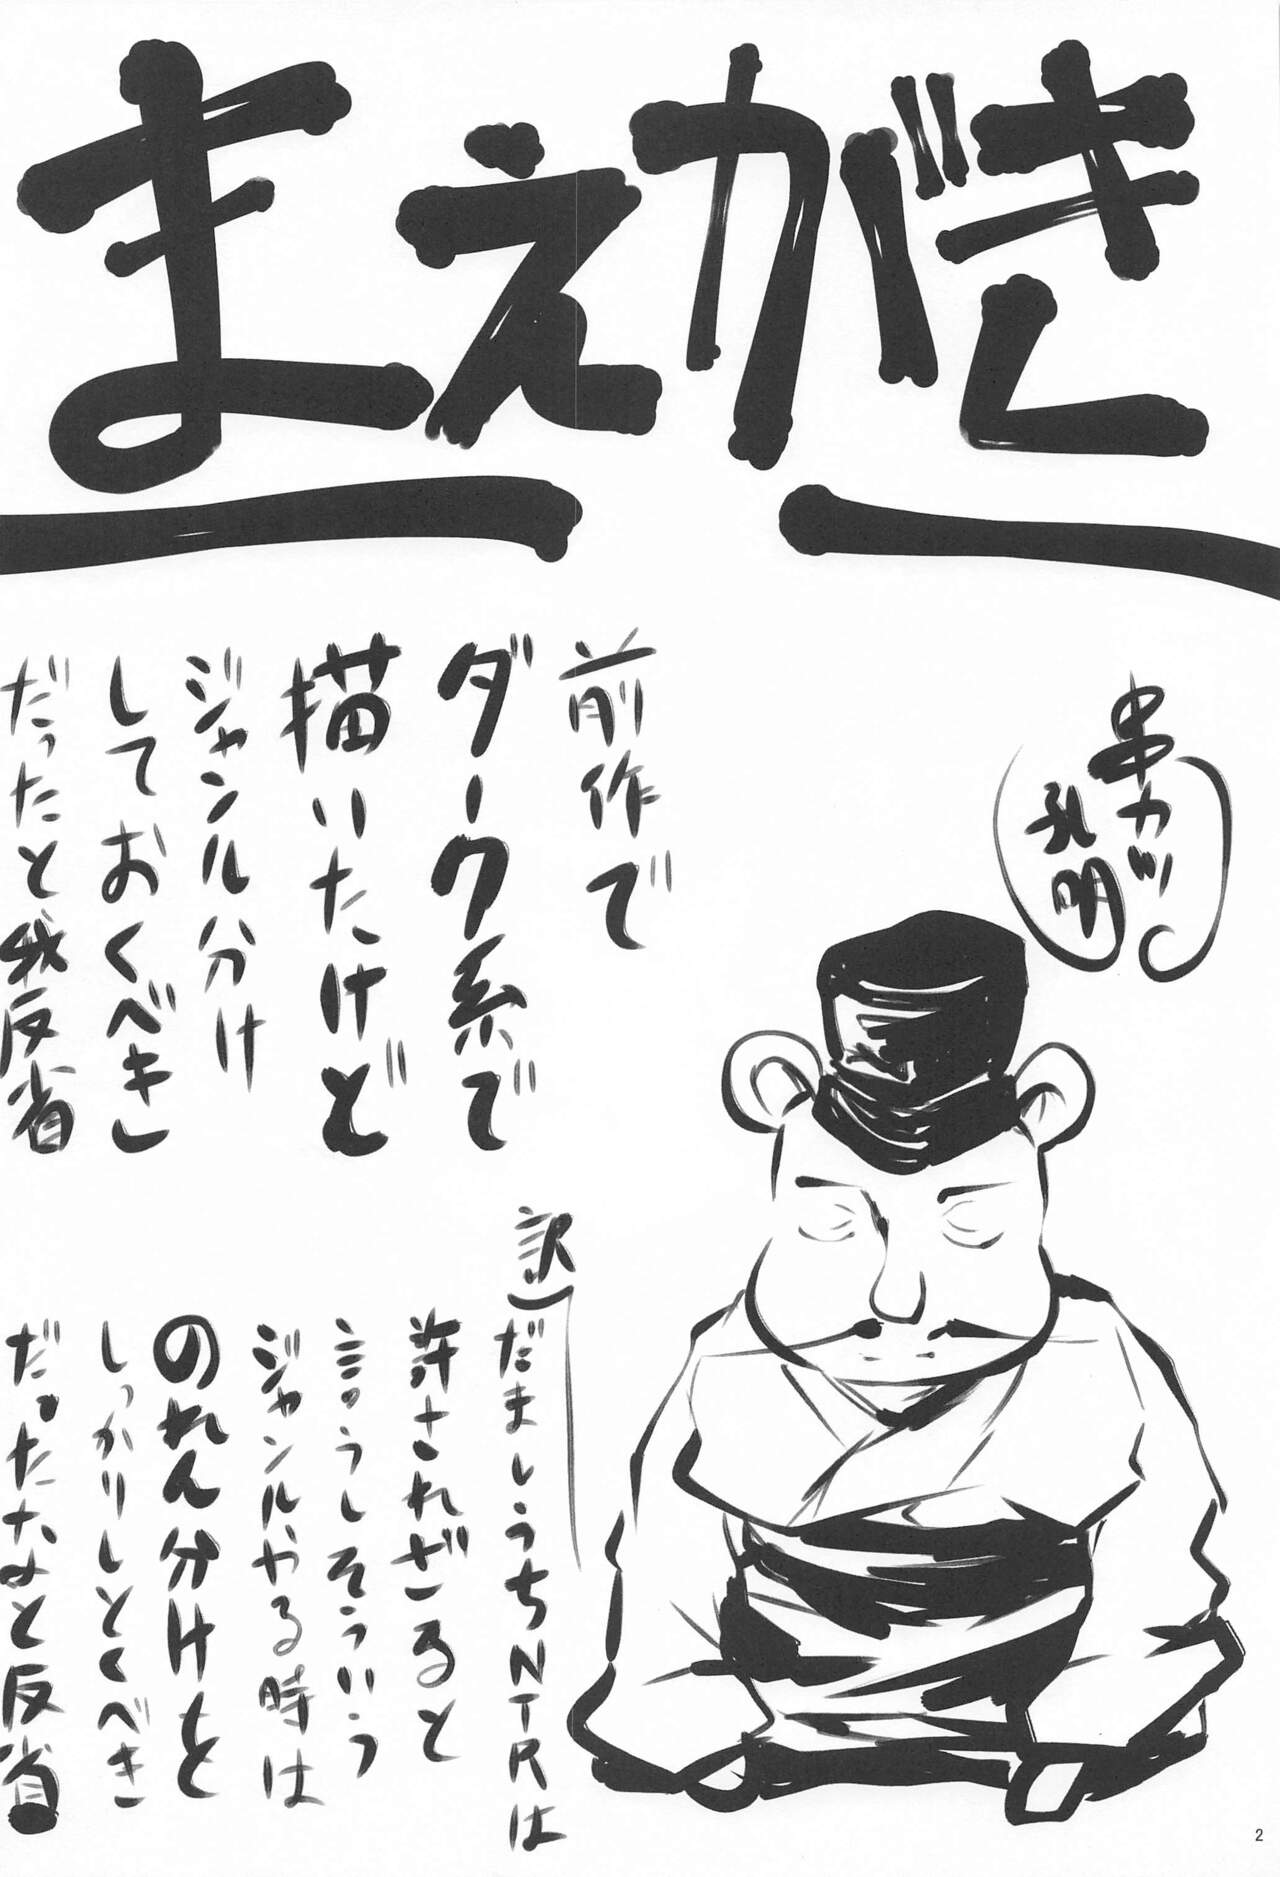 まえがき
串カツ
孔明
前作で
ダーク系で
描いたけど
ジャンル分け
しておくべき
だったと我反省
訳)
だましうちNTRは
許されざると
言うしそういう
ジャンルやる時は
のれん分けを
しっかりしとくべき
だったなと反省
2